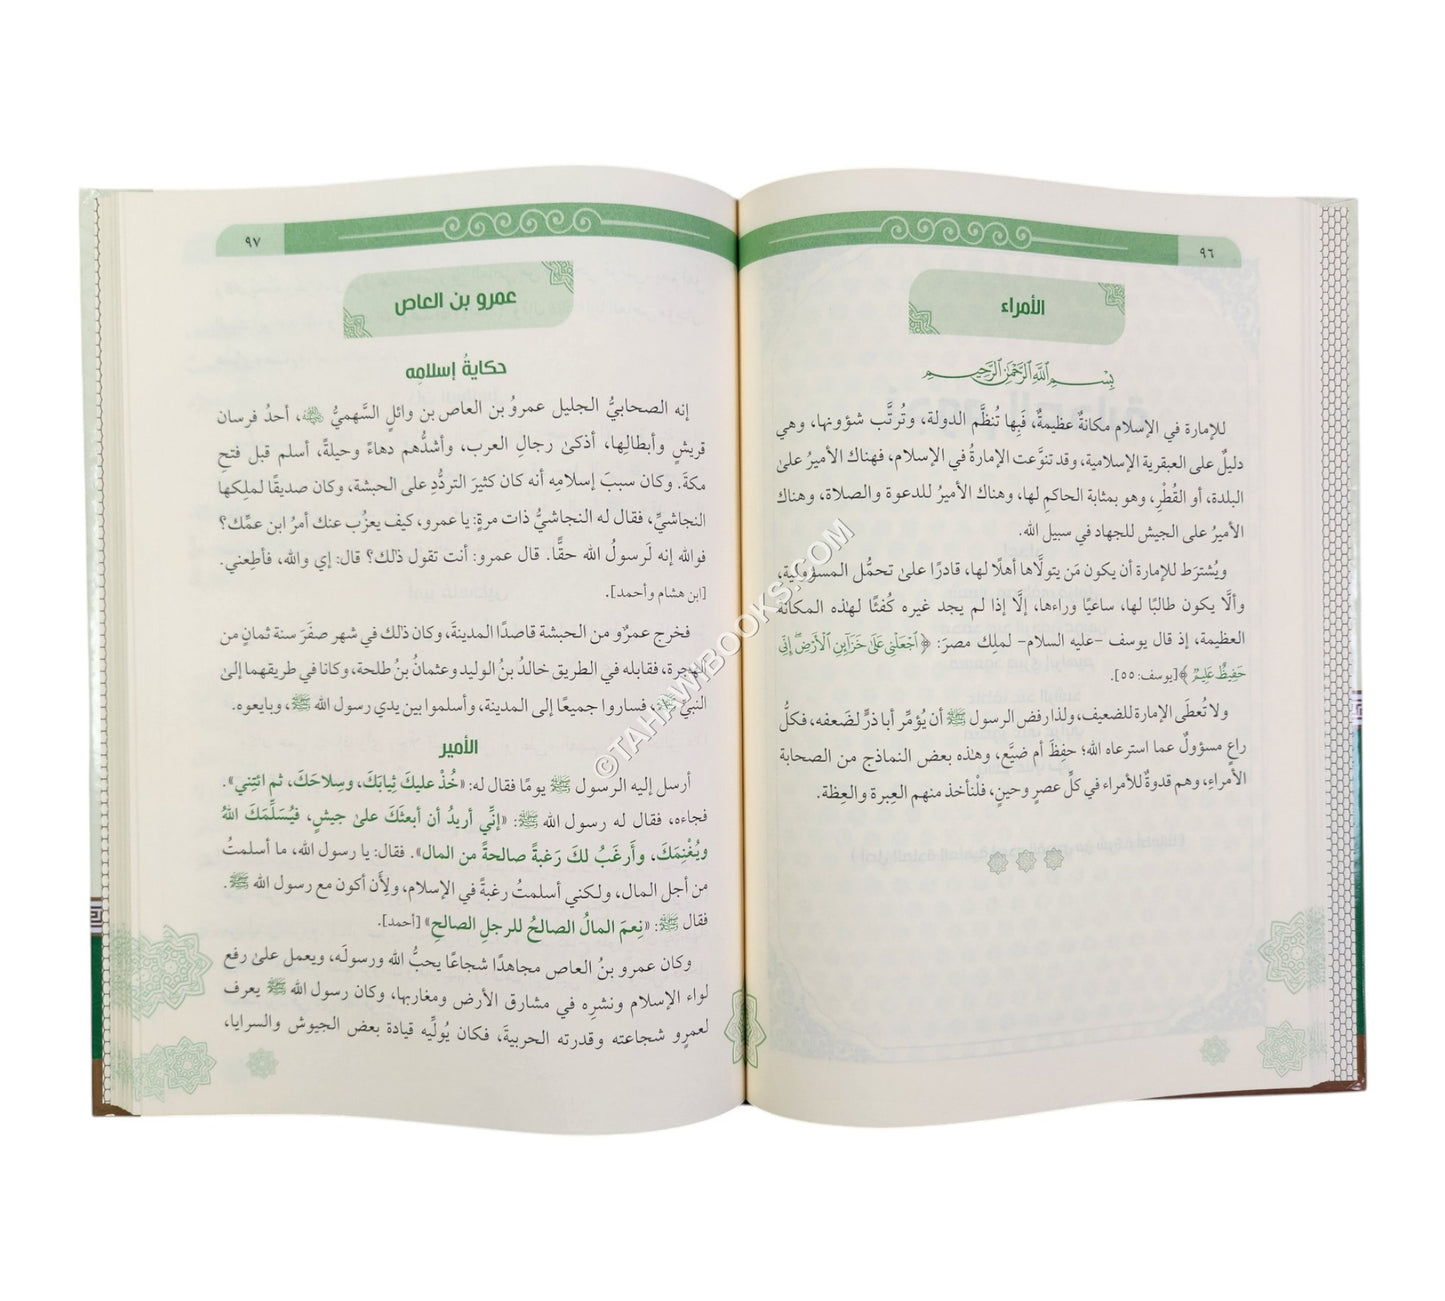 ٩٦
الأمراء
بِسْمِ ٱللَّهِ ٱلرَّحْمَٰنِ ٱلرَّحِيمِ
للإمارة في الإسلام مكانةٌ عظيمةٌ، فَبِها تُنظَّم الدولة، وتُرتَّب شؤونها، وهي
دليلٌ على العبقرية الإسلامية، وقد تنوَّعت الإمارةُ في الإسلام، فهناك الأميرُ علىٰ
البلدة، أو القُطْرِ، وهو بمثابة الحاكمِ لها، وهناك الأميرُ للدعوة والصلاة، وهناك
الأميرُ على الجيش للجهاد في سبيل الله.
ويُشترَط للإمارة أن يكون مَن يتولَّاها أهلًا لها، قادرًا علىٰ تحمُّل المسؤولية،
وألَّا يكون طالبًا لها، ساعيًا وراءها، إلَّا إذا لم يجد غيره كُفئًا لهذه المكانة
العظيمة، إذ قال يوسف -عليه السلام- لملِك مصرَ: ﴿ٱجْعَلْنِى عَلَىٰ خَزَآئِنِ ٱلْأَرْضِ ۖ إِنِّى
حَفِيظٌ عَلِيمٌ﴾ [يوسف: ٥٥].
ولا تُعطَى الإمارة للضعيف، ولذا رفض الرسول ﷺ أن يُؤمِّر أبا ذرٍّ لضَعفه، فكلُّ
راعٍ مسؤولٌ عما استرعاه الله؛ حفِظَ أم ضيَّع، وهذه بعض النماذج من الصحابة
الأمراءِ، وهم قدوةٌ للأمراء في كلِّ عصرٍ وحينٍ، فلْنأخذ منهم العِبرة والعِظة.
٩٧
عمرو بن العاص
حكايةُ إسلامِه
إنه الصحابيُّ الجليل عمروُ بن العاص بن وائلٍ السَّهميُّ ﵁، أحدُ فرسان
قريشٍ وأبطالِها، أذكىٰ رجالِ العرب، وأشدُّهم دهاءً وحيلةً، أسلم قبل فتحِ
مكةَ. وكان سببَ إسلامِه أنه كان كثيرَ التردُّدِ على الحبشة، وكان صديقًا لملِكها
النجاشيِّ، فقال له النجاشيُّ ذات مرةٍ: يا عمرو، كيف يعزُب عنك أمرُ ابن عمِّك؟
فوالله إنه لَرسولُ الله حقًّا. قال عمرو: أنت تقول ذلك؟ قال: إي والله، فأطِعني.
[ابن هشام وأحمد].
فخرج عمرٌو من الحبشة قاصدًا المدينةَ، وكان ذلك في شهر صفَرَ سنة ثمانٍ من
الهجرة، فقابله في الطريق خالدُ بنُ الوليد وعثمانُ بنُ طلحة، وكانا في طريقهما إلىٰ
النبيِّ ﷺ، فساروا جميعًا إلى المدينة، وأسلموا بين يدي رسول الله ﷺ، وبايعوه.
الأمير
أرسل إليه الرسول ﷺ يومًا فقال له: «خُذْ عليكَ ثِيابَكَ، وسِلاحَكَ، ثم ائتِني».
فجاءه، فقال له رسول الله ﷺ: «إنِّي أريدُ أن أبعثَكَ علىٰ جيشٍ، فيُسَلِّمَكَ اللهُ
ويُغْنِمَكَ، وأَرغَبُ لكَ رَغبةً صالحةً من المال». فقال: يا رسول الله، ما أسلمتُ
من أجل المال، ولكني أسلمتُ رغبةً في الإسلام، ولِأَن أكون مع رسول الله ﷺ.
فقال ﷺ: «نِعمَ المالُ الصالحُ للرجلِ الصالحِ» [أحمد].
وكان عمرو بنُ العاص مجاهدًا شجاعًا يحبُّ الله ورسولَه، ويعمل علىٰ رفع
لواء الإسلام ونشرِه في مشارق الأرض ومغاربها، وكان رسول الله ﷺ يعرف
لعمرٍو شجاعته وقدرته الحربيةَ، فكان يُولِّيه قيادة بعض الجيوش والسرايا،
©TAHAWIBOOKS.COM